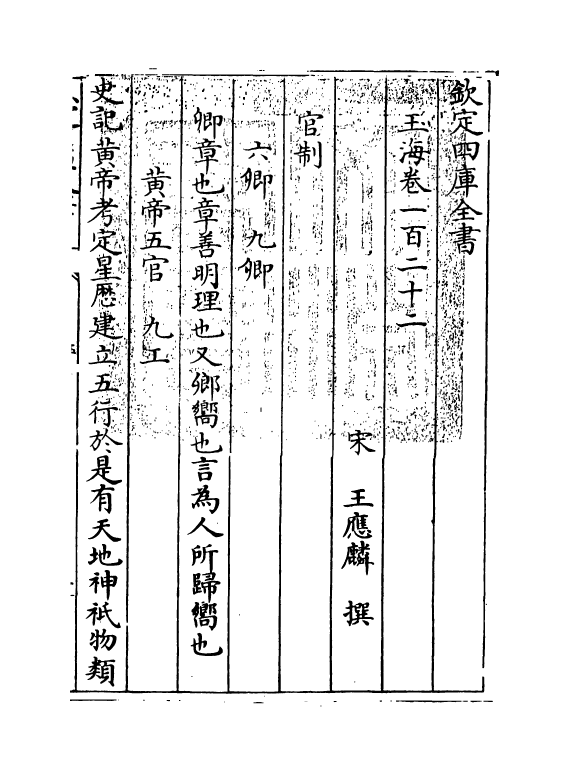 欽定四庫全書
玉海卷一百二十二
宋 王應麟 撰
官制
六卿 九卿
卿章也章善明理也又鄉嚮也言為人所歸嚮也
黄帝五官 九工
史記黄帝考定星厯建立五行於是有天地神祇物類